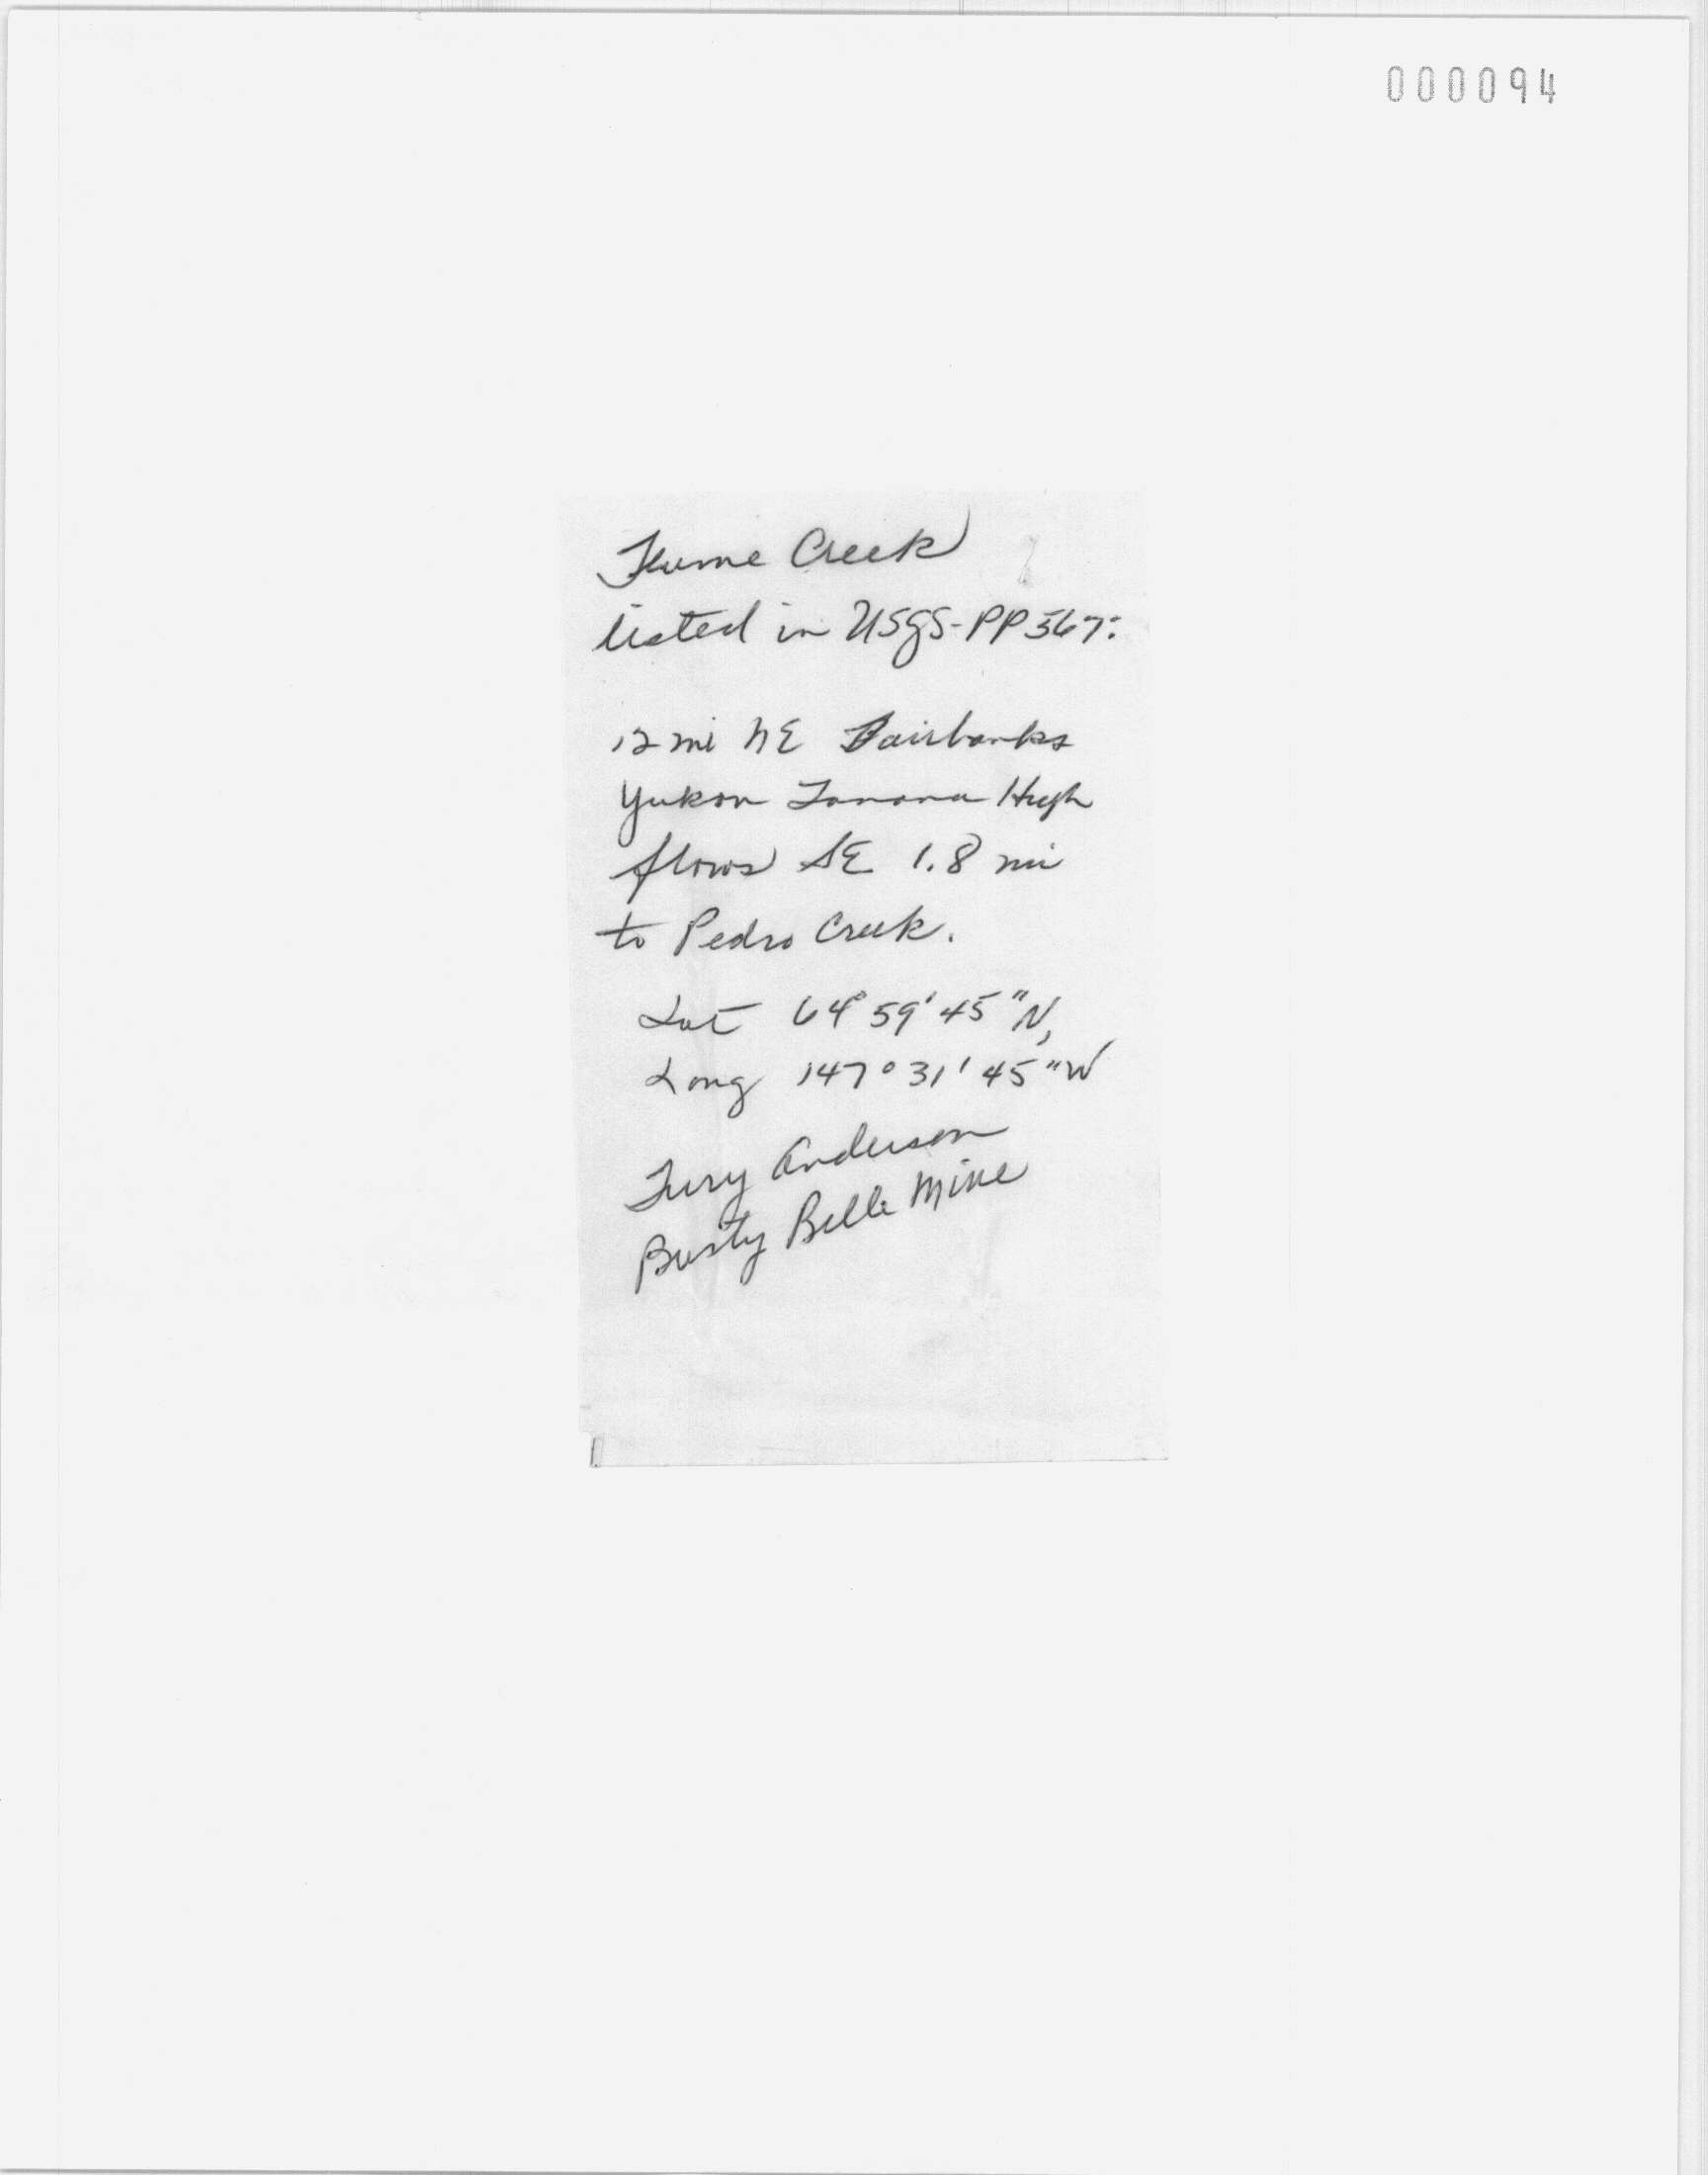 000094
Flume Creek
listed in USGS-PP567:
12 mi NE Fairbanks
Yukon Tanana High
flows SE 1.8 mi
to Pedro Creek.
Lat 64° 59' 45" N,
Long 147° 31' 45" W
Terry Anderson
Busty Belle Mine